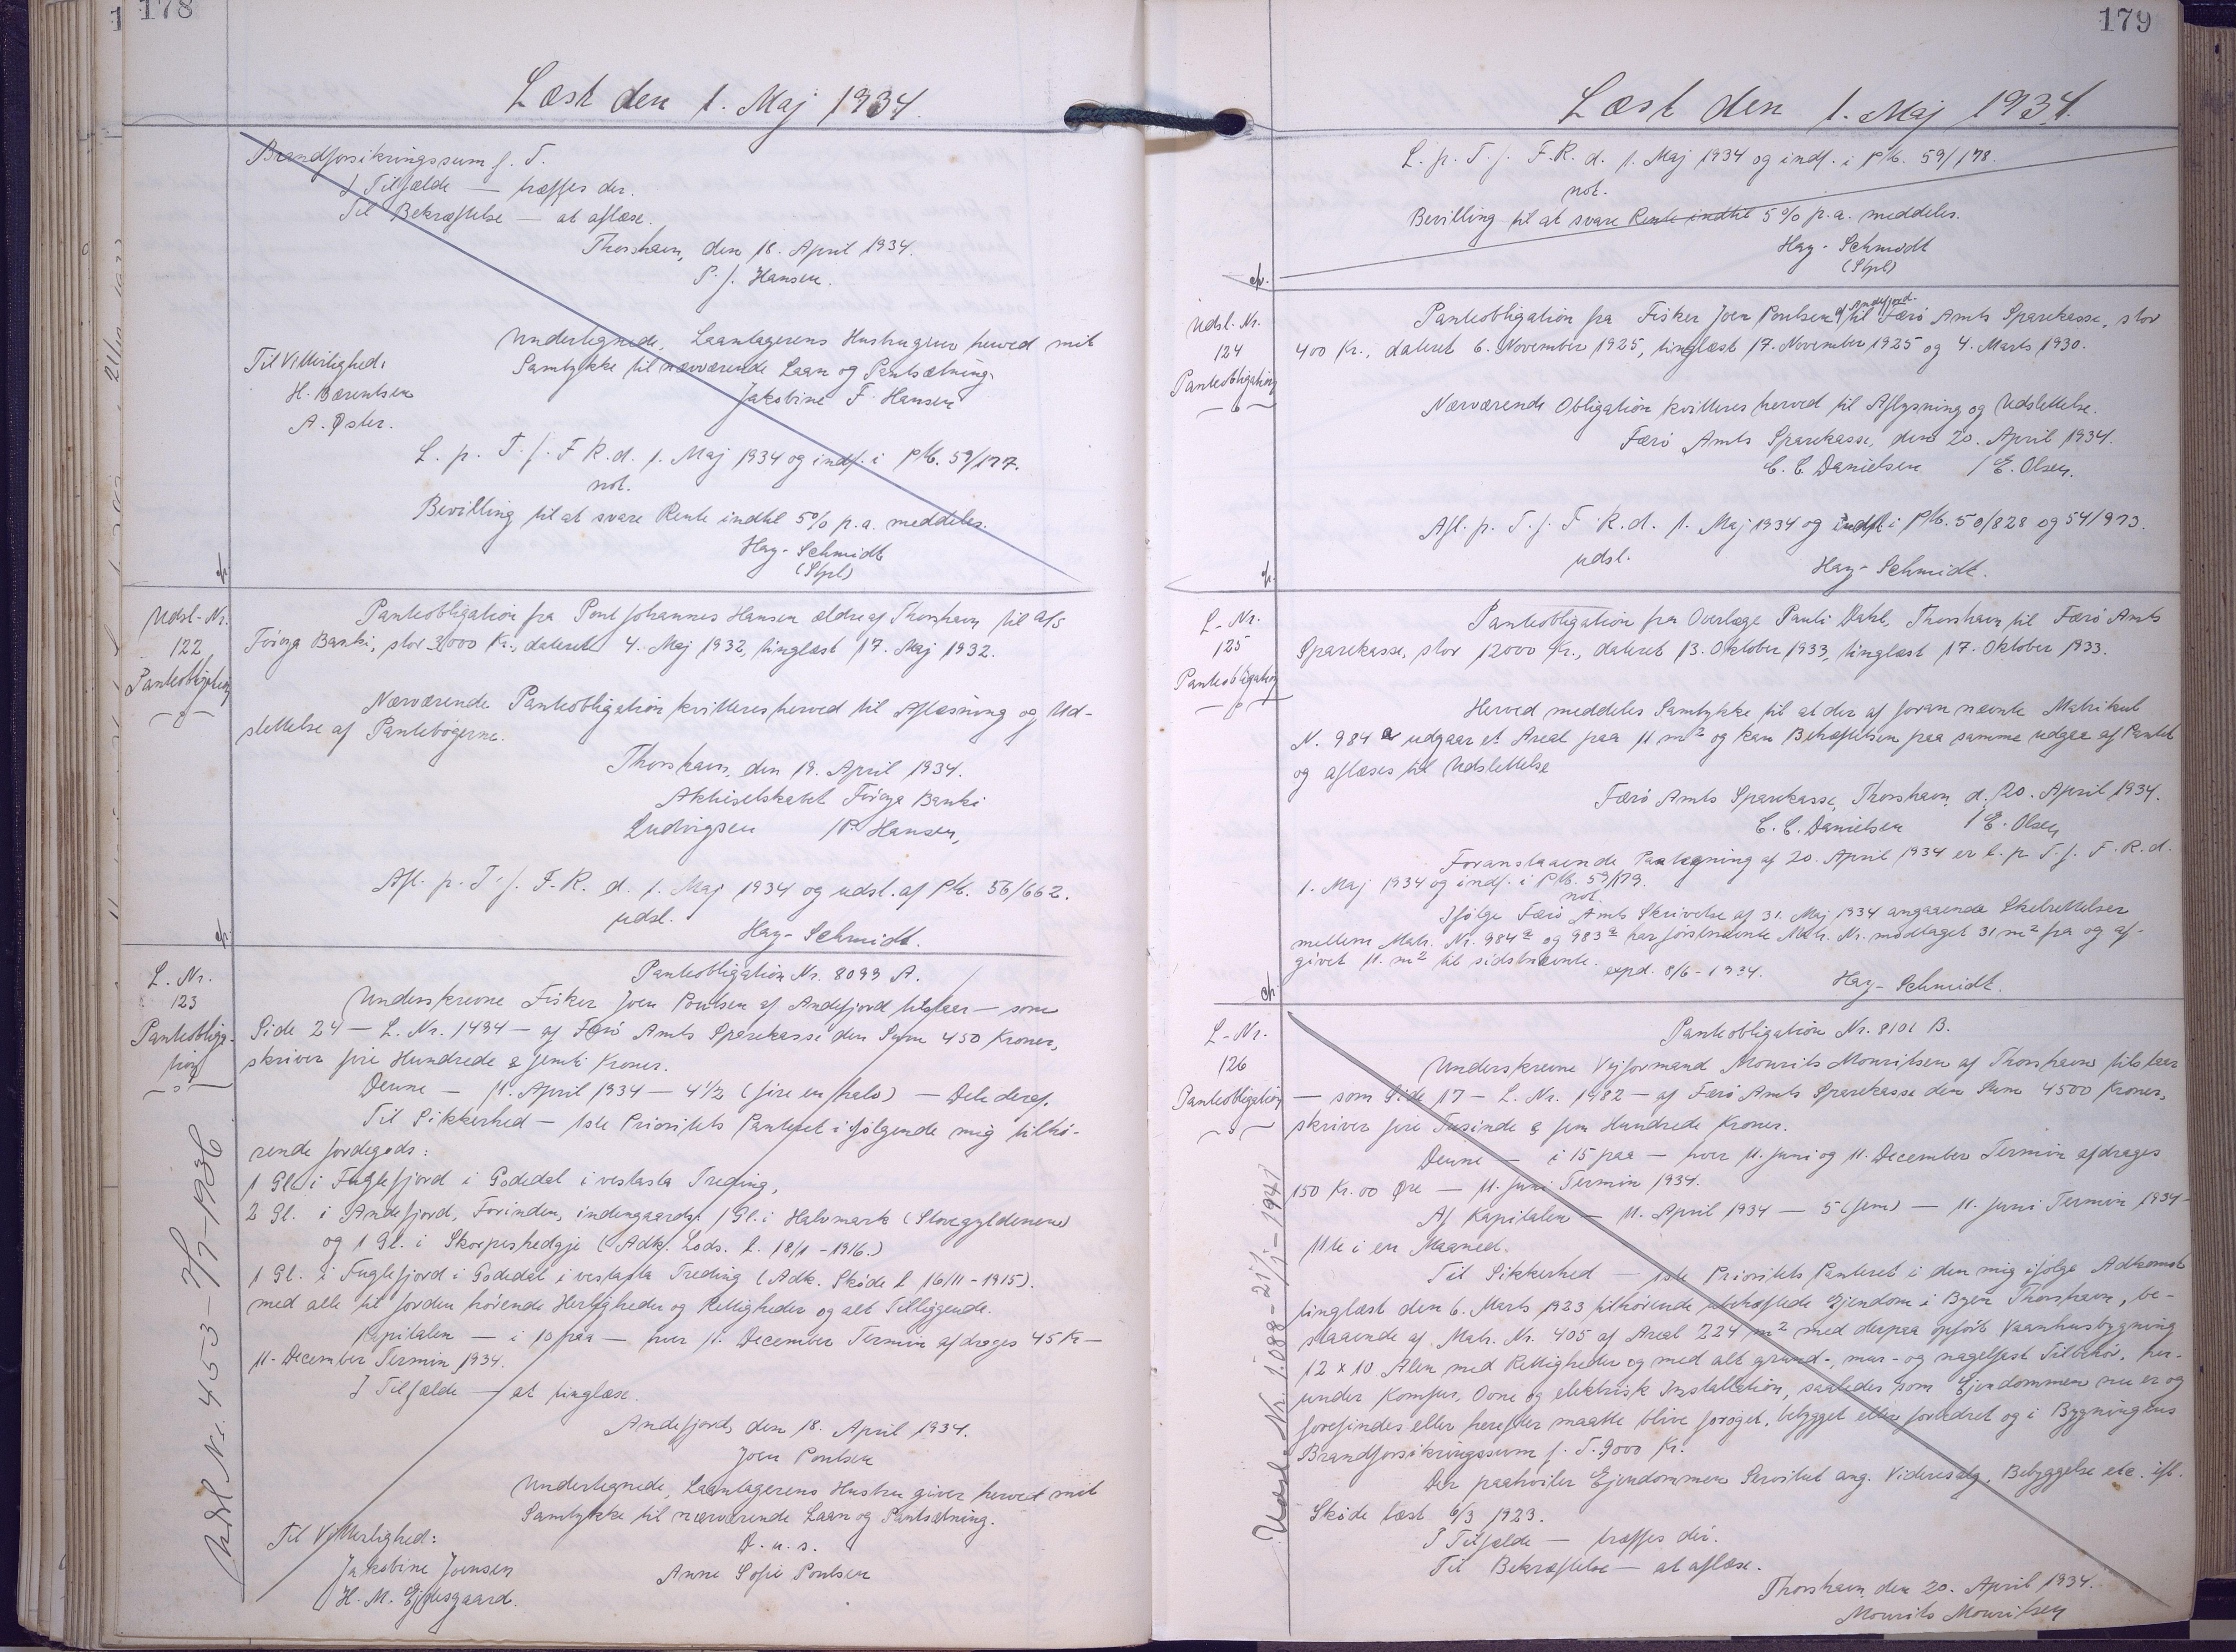 178
Læst den 1. Maj 1934.
Brandforsikringssum f. T.
I Tilfælde — træffes der.
Til Bekræftelse — at aflæse.
Thorshavn, den 18. April 1934.
P. J. Hansen.
Undertegnede, Laantagerens Hustru giver herved mit
Samtykke til nærværende Laan og Pantsætning.
Jakobine F. Hansen
Til Vitterlighed:
H. Bærentsen
A. Øster.
L. p. T. f. F. R. d. 1. Maj 1934 og indf. i PM. 59/177.
not.
Bevilling til at svare Rente indtil 5% p.a. meddeles.
Hay-Schmidt
(Stpl)
Udsl.-Nr.
122
Panteobligation
Panteobligation fra Poul Johannes Hansen ældre af Thorshavn til A/S
Føroya Banki, stor 3000 Kr., dateret 4. Maj 1932, tinglæst 17. Maj 1932.
Nærværende Panteobligation kvitteres herved til Aflæsning og Ud-
slettelse af Pantebøgerne.
Thorshavn, den 19. April 1934.
Aktieselskabet Føroya Banki
Ludvigsen /P. Hansen,
Afl. p. T. f. F. R. d. 1. Maj 1934 og udsl. af PM. 56/662.
udsl.
Hay-Schmidt.
L. Nr.
123
Panteobliga-
tion
Panteobligation Nr. 8099 A.
Underskrevne Fisker Joen Poulsen af Andefjord tilstaar — som
Side 24 — L. Nr. 1494 — af Færø Amts Sparekasse den Sum 450 Kroner,
skriver fire Hundrede & femti Kroner.
Denne — 11. April 1934 — 4½ (fire en halv) — Dele deraf.
Til Sikkerhed — 1ste Prioritets Panteret i følgende mig tilhø-
rende Jordegods:
1 Gl. i Fuglefjord i Godedal i vestasta Treding,
2 Gl. i Andefjord, Forinden, indengaards, 1 Gl. i Halvmark (Storegyldenene)
og 1 Gl. i Skorpeshedgje (Adk. Lods. l. 18/1 - 1916.)
1 Gl. i Fuglefjord i Godedal i vestasta Treding (Adk. Skøde l. 16/11 - 1915).
med alle til Jorden hørende Herligheder og Rettigheder og alt Tilliggende.
Kapitalen — i 10 paa — hver 11. December Termin afdrages 45 Kr —
11. December Termin 1934.
I Tilfælde — at tinglæse.
Andefjord, den 18. April 1934.
Joen Poulsen
Undertegnede, Laantagerens Hustru giver herved mit
Samtykke til nærværende Laan og Pantsætning.
Til Vitterlighed:
D. u. s.
Jakobine Joensen
Anne Sofie Poulsen
H. M. Ejdesgaard.
Udsl Nr. 453 - 7/7 - 1936
179
Læst den 1. Maj 1934.
L. p. T. f. F. R. d. 1. Maj 1934 og indf. i PM. 59/178.
not.
Bevilling til at svare Rente indtil 5% p.a. meddeles.
Hay-Schmidt
(Stpl)
Udsl.-Nr.
124
Panteobligation
Panteobligation fra Fisker Joen Poulsen af Andefjord til Færø Amts Sparekasse, stor
400 Kr., dateret 6. November 1925, tinglæst 17. November 1925 og 4. Marts 1930.
Nærværende Obligation kvitteres herved til Aflysning og Udslettelse.
Færø Amts Sparekasse, den 20. April 1934.
C. C. Danielsen /E. Olsen.
Afl. p. T. f. F. R. d. 1. Maj 1934 og i PM. 50/828 og 54/973.
udsl.
Hay-Schmidt.
L-Nr.
125
Panteobligation
Panteobligation fra Overlæge Pauli Dahl, Thorshavn til Færø Amts
Sparekasse, stor 12000 Kr., dateret 13. Oktober 1933, tinglæst 17. Oktober 1933.
Herved meddeles Samtykke til at der af foran nævnte Matrikul
N. 984 a udgaar et Areal paa 11 m² og kan Behæftelsen paa samme udgaa af Pantet
og aflæses til Udslettelse
Færø Amts Sparekasse, Thorshavn, d. 20. April 1934.
C. C. Danielsen / E. Olsen
Foranstaaende Paategning af 20. April 1934 er l. p. T. f. F. R. d.
1. Maj 1934 og indf. i PM. 59/179.
not.
Ifølge Færø Amts Skrivelse af 31. Maj 1934 angaaende Skelrettelser
mellem Matr. Nr. 984a og 983a har førstnævnte Matr. Nr. modtaget 31 m² fra og af-
givet 11. m² til sidstnævnte.
expd. 8/6 - 1934.
Hay-Schmidt.
L-Nr.
126
Panteobligation
Panteobligation Nr. 8101 B.
Underskrevne Vejformand Mourits Mouritsen af Thorshavn tilstaar
— som Side 17 — L. Nr. 1982 — af Færø Amts Sparekasse den Sum 4500 Kroner,
skriver fire Tusinde & fem Hundrede Kroner.
Denne — i 15 paa — hver 11. Juni og 11. December Termin afdrages
150 Kr. 00 Øre — 11. Juni Termin 1934.
Af Kapitalen — 11. April 1934 — 5 (fem) — 11. Juni Termin 1934 —
11te i en Maaned.
Til Sikkerhed — 1ste Prioritets Panteret i den mig ifølge Adkomst
tinglæst den 6. Marts 1923 tilhørende ubehæftede Ejendom i Byen Thorshavn, be-
staaende af Matr. Nr. 405 af Areal 224 m² med derpaa opført Vaanhusbygning
12 x 10 Alen med Rettigheder og med alt grund-, mur- og nagelfast Tilbehør, her-
under Komfur, Ovne og elektrisk Installation, saaledes som Ejendommen nu er og
forefindes eller herefter maatte blive forøget, bebygget eller forbedret og i Bygningens
Brandforsikringssum f. T. 9000 Kr.
Der paahviler Ejendommen Servitut ang. Videresalg, Bebyggelse etc. ifl.
Skøde læst 6/3 1923.
I Tilfælde — træffes der.
Til Bekræftelse — at aflæse.
Thorshavn, den 20. April 1934.
Mourits Mouritsen
Udsl. Nr. 1.088 - 21/1 - 1941